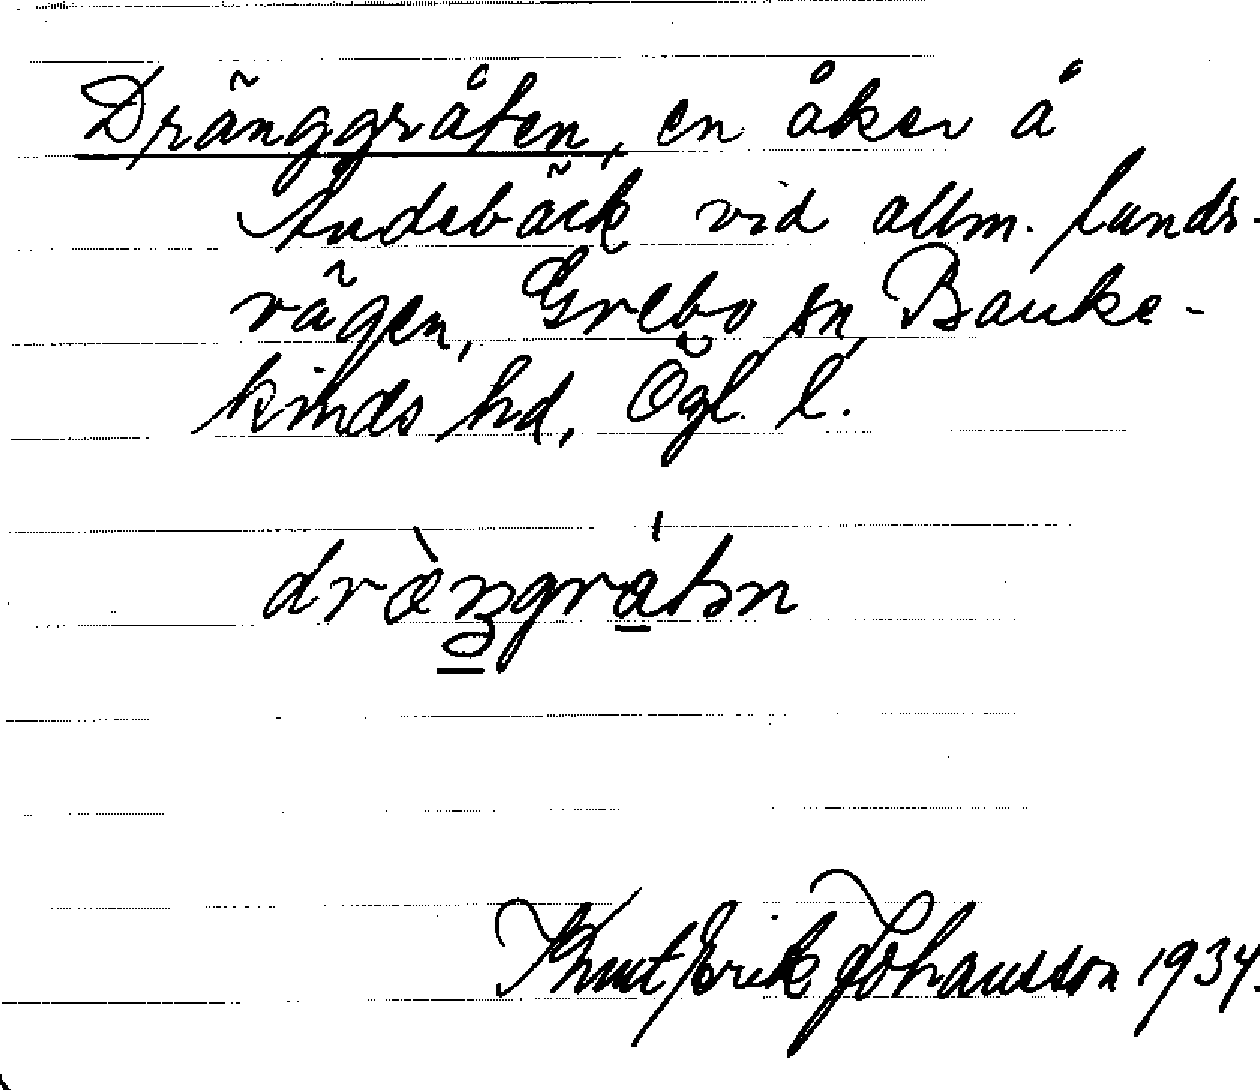 Dränggråten, en åker å
Andebäck vid allm. lands-
vägen, Grebo sn, Banke-
kinds hd, Ögl. l.
Knut Erik Johansson 1934.